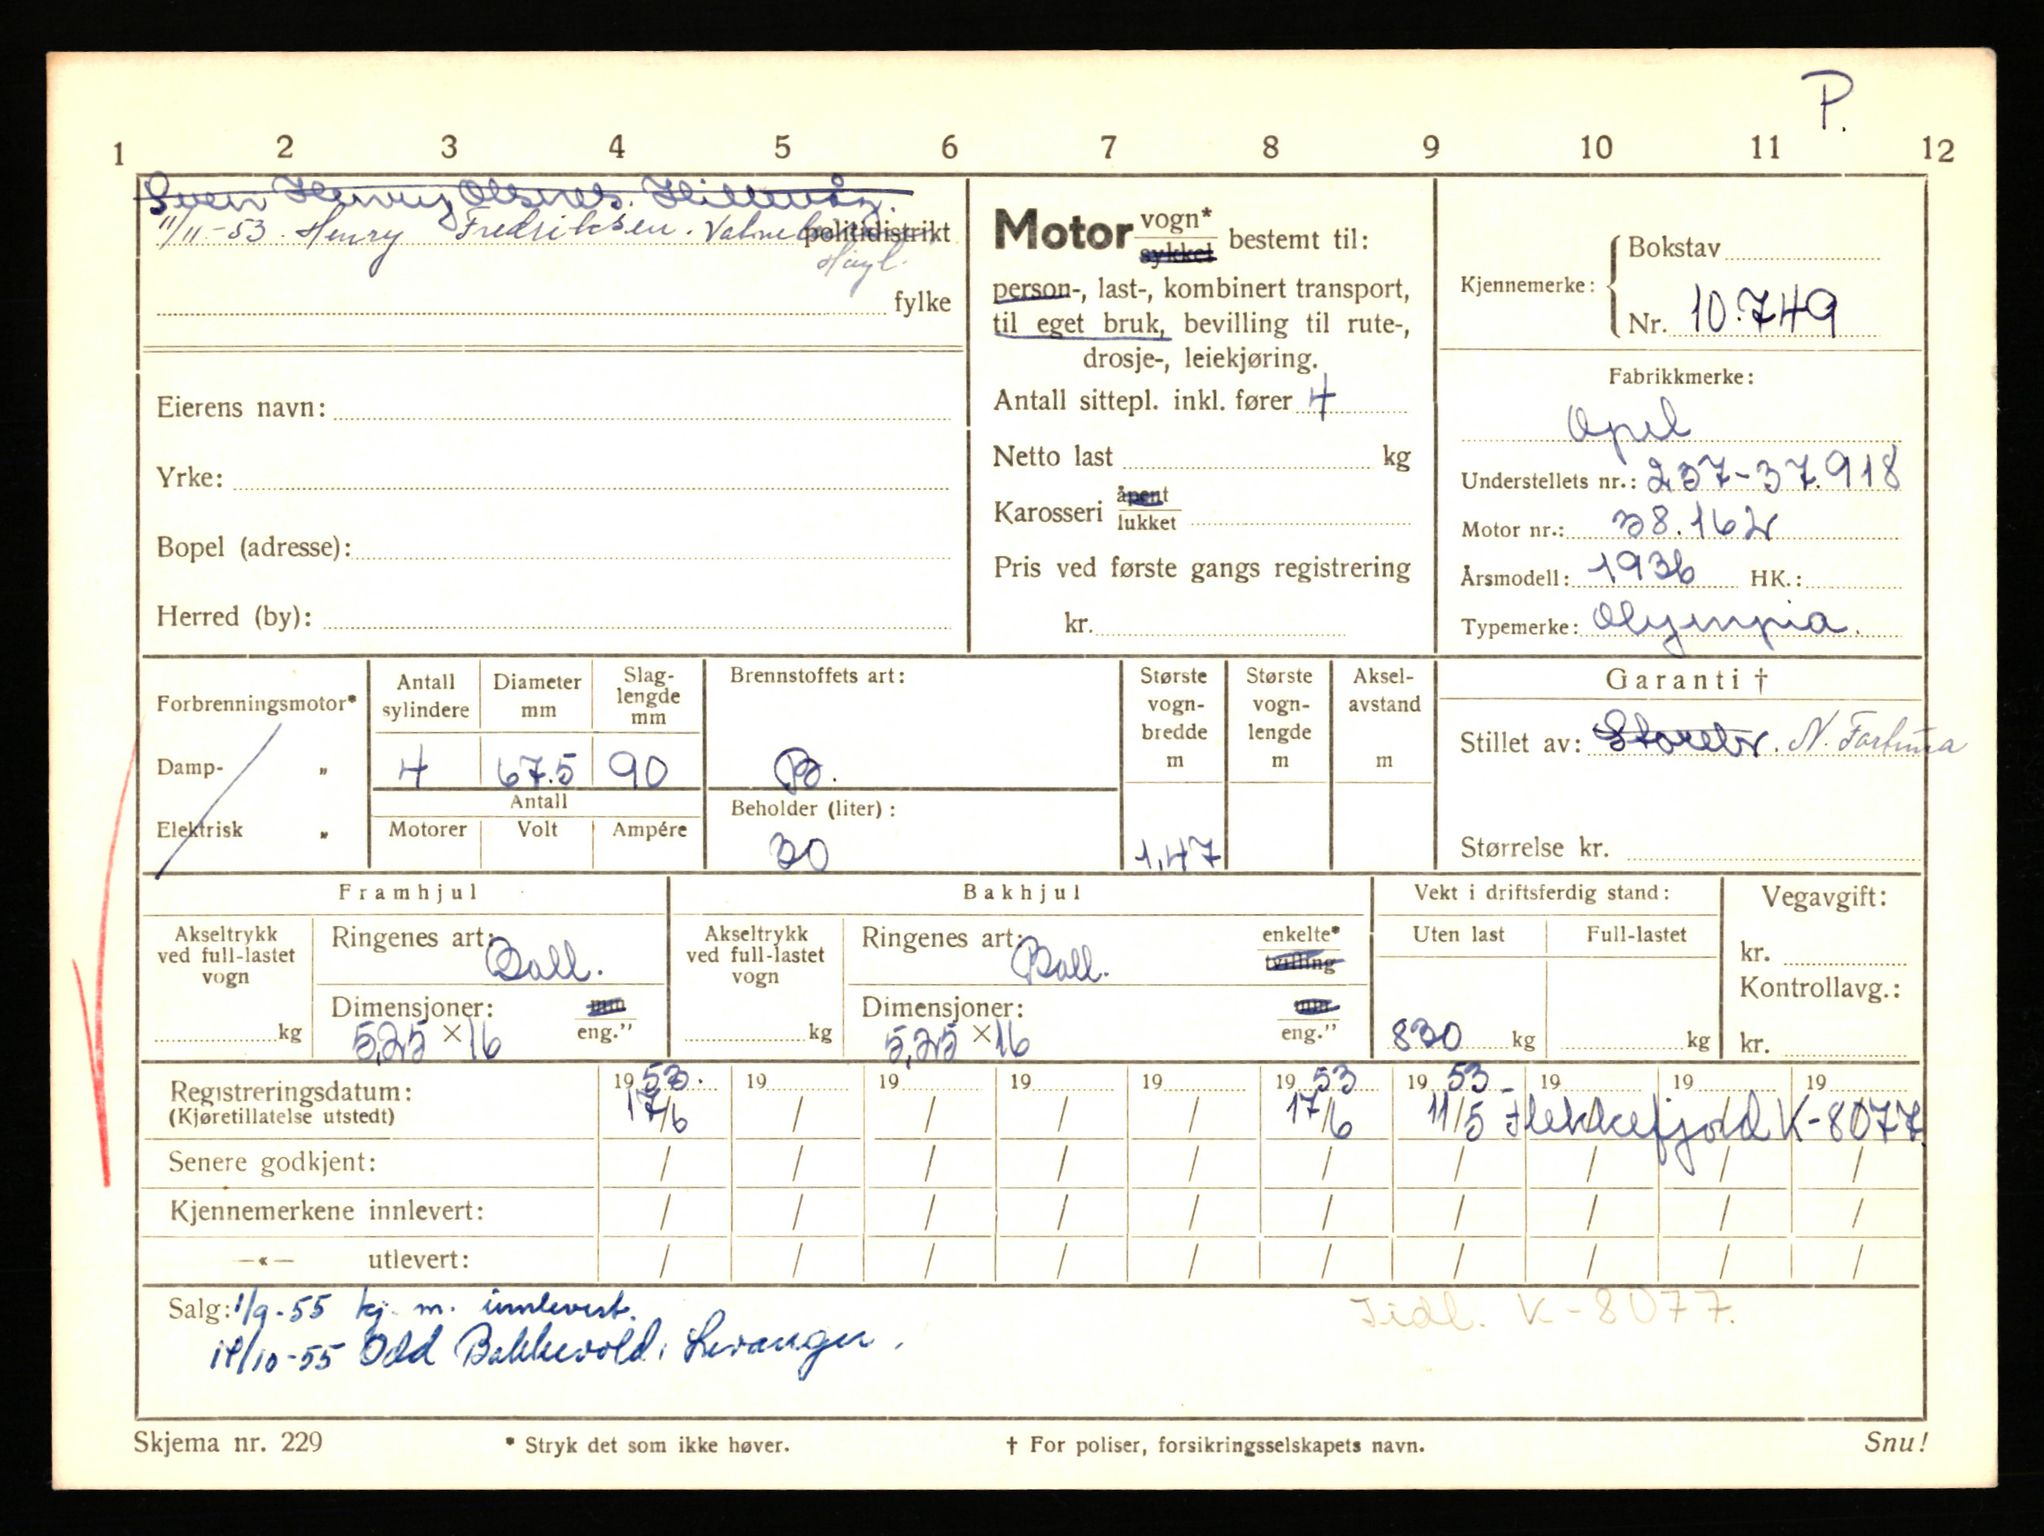 P.
1 2 3 4 5 6 7 8 9 10 11 12
Sven Henry Olsnes. Hillevåg.
11/11-53. Henry Fredriksen. politidistrikt
fylke
Eierens navn:
Yrke:
Bopel (adresse):
Herred (by):
Motor vogn* sykkel bestemt til:
person-, last-, kombinert transport,
til eget bruk, bevilling til rute-,
drosje-, leiekjøring.
Antall sittepl. inkl. fører 4
Netto last kg
Karosseri åpent lukket
Pris ved første gangs registrering
kr.
Kjennemerke: Bokstav
Nr. 10.749
Fabrikkmerke:
Opel
Understellets nr.: 237-37.918
Motor nr.: 38.162
Årsmodell: 1936 HK.:
Typemerke: Olympia.
Forbrenningsmotor*
Damp- „
Elektrisk „
Antall sylindere
Diameter mm
Slaglengde mm
4 67.5 90
Antall
Motorer Volt Ampére
Brennstoffets art:
B.
Beholder (liter):
30
Største vognbredde m
1,47
Største vognlengde m
Akselavstand m
Garanti †
Stillet av: Storebr. N. Fortuna
Størrelse kr.
Framhjul
Akseltrykk ved full-lastet vogn
kg
Ringenes art: Ball.
Dimensjoner: mm
5,25 × 16 eng.”
Bakhjul
Akseltrykk ved full-lastet vogn
kg
Ringenes art: Ball. enkelte* tvilling
Dimensjoner: mm
5,25 × 16 eng.”
Vekt i driftsferdig stand:
Uten last Full-lastet
830 kg kg
Vegavgift:
kr.
Kontrollavg.:
kr.
Registreringsdatum: 19 53. 19 19 19 19 19 53 19 53 19 19 19
(Kjøretillatelse utstedt) 17/6 / / / / 17/6 11/5 Flekkefjord K-8077.
Senere godkjent: / / / / / / / / / /
Kjennemerkene innlevert: / / / / / / / / / /
—«— utlevert: / / / / / / / / / /
Salg: 1/9-55 kj. m. innlevert.
Tidl. K-8077.
14/10-55 Odd Bakkevold, Levanger.
Skjema nr. 229 * Stryk det som ikke høver. † For poliser, forsikringsselskapets navn. Snu!